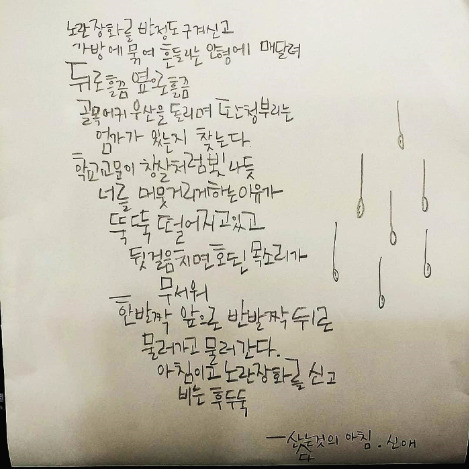 노란장화를 반정도 구겨신고
가방에 묶여 흔들리는 인형에 매달려
뒤로흘끔 옆으로흘끔
골목어귀 우산을 돌리며 또 는청부리는
엄마가 있는지 찾는다
학교교문이 창살처럼 빛나듯
너를 머뭇거리게하는이유가
뚝뚝 떨어지고있고
뒷걸음치면 호된 목소리가
무서워
한발짝 앞으로 반발짝 뒤로
물러가고 물러간다.
아침이고 노란장화를 신고
비는 후두둑
산다는것의 아침. 신애